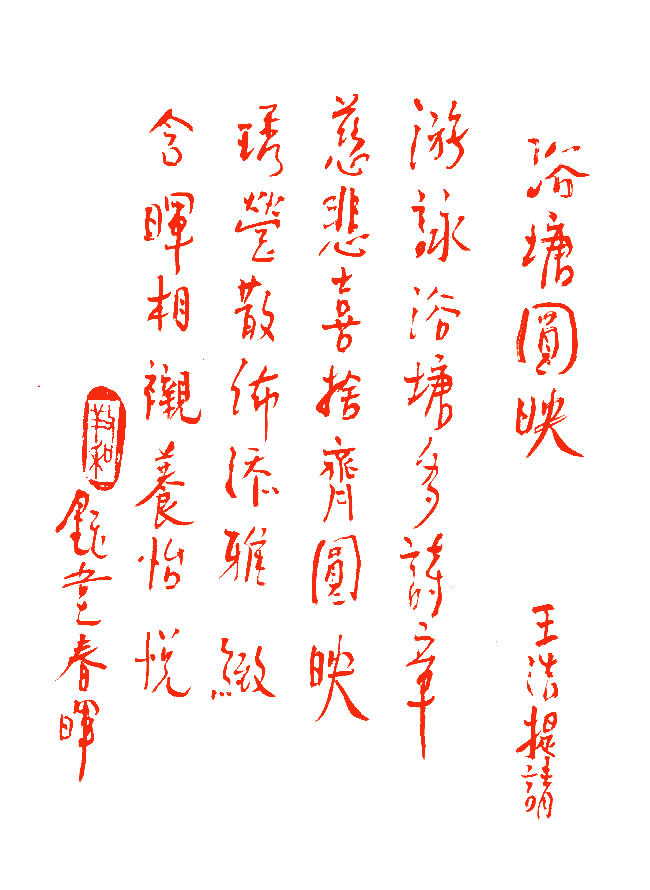 浴塘圓映
王浩提請
游詠浴塘多詩章
慈悲喜捨齊圓映
琇瑩散佈添雅緻
含暉相襯養怡悅
致和
童春暉